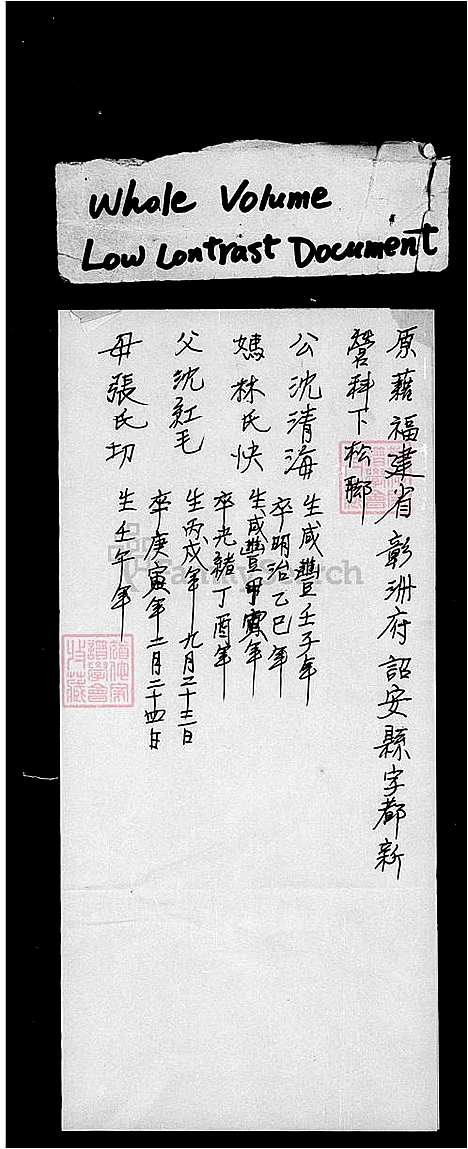 Whole Volume
Low Contrast Document
原藉福建省彰洲府詔安縣字都新
營科下松腳
公沈清海 生咸豐壬子年
卒明治乙巳年
媽林氏快 生咸豐甲寅年
卒光緒丁酉年
父沈紅毛 生丙戌年九月二十三日
卒庚寅年二月二十四日
母張氏切 生壬午年
FamilySearch